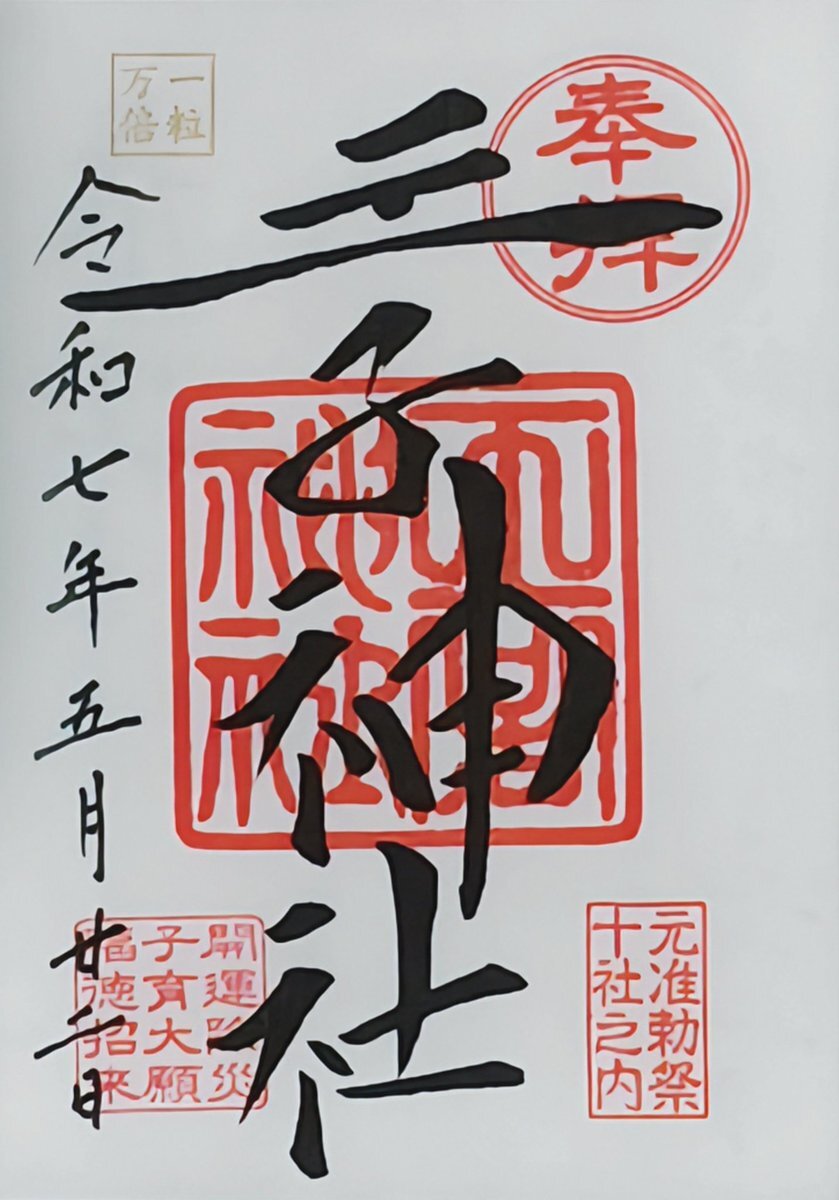 奉拝
元准勅祭
十社之内
王子神社
開運除災
子育大願
福徳招来
一粒
万倍
令和七年五月廿二日